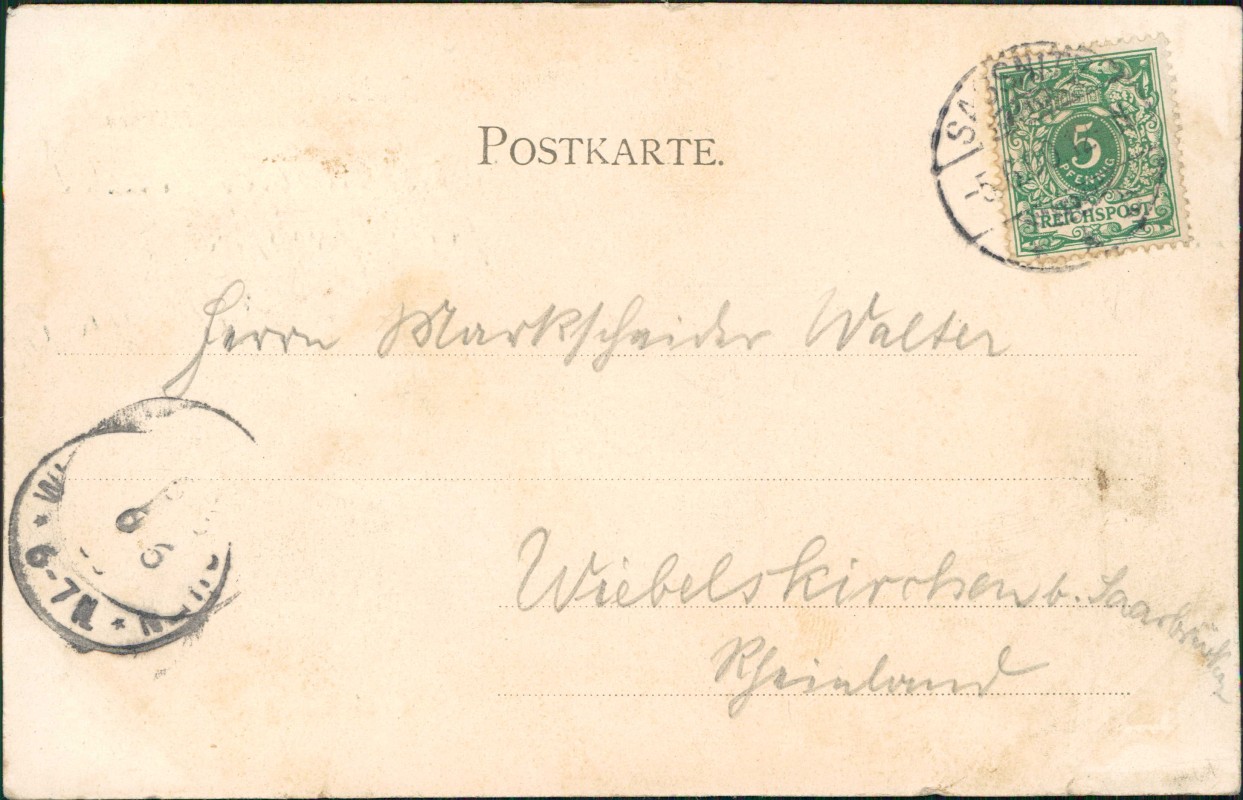 POSTKARTE.
5
PFENNIG
REICHSPOST
Herrn Markscheider Walter
Wiebelskirchen b. Saarbrücken
Rheinland
7-9 N